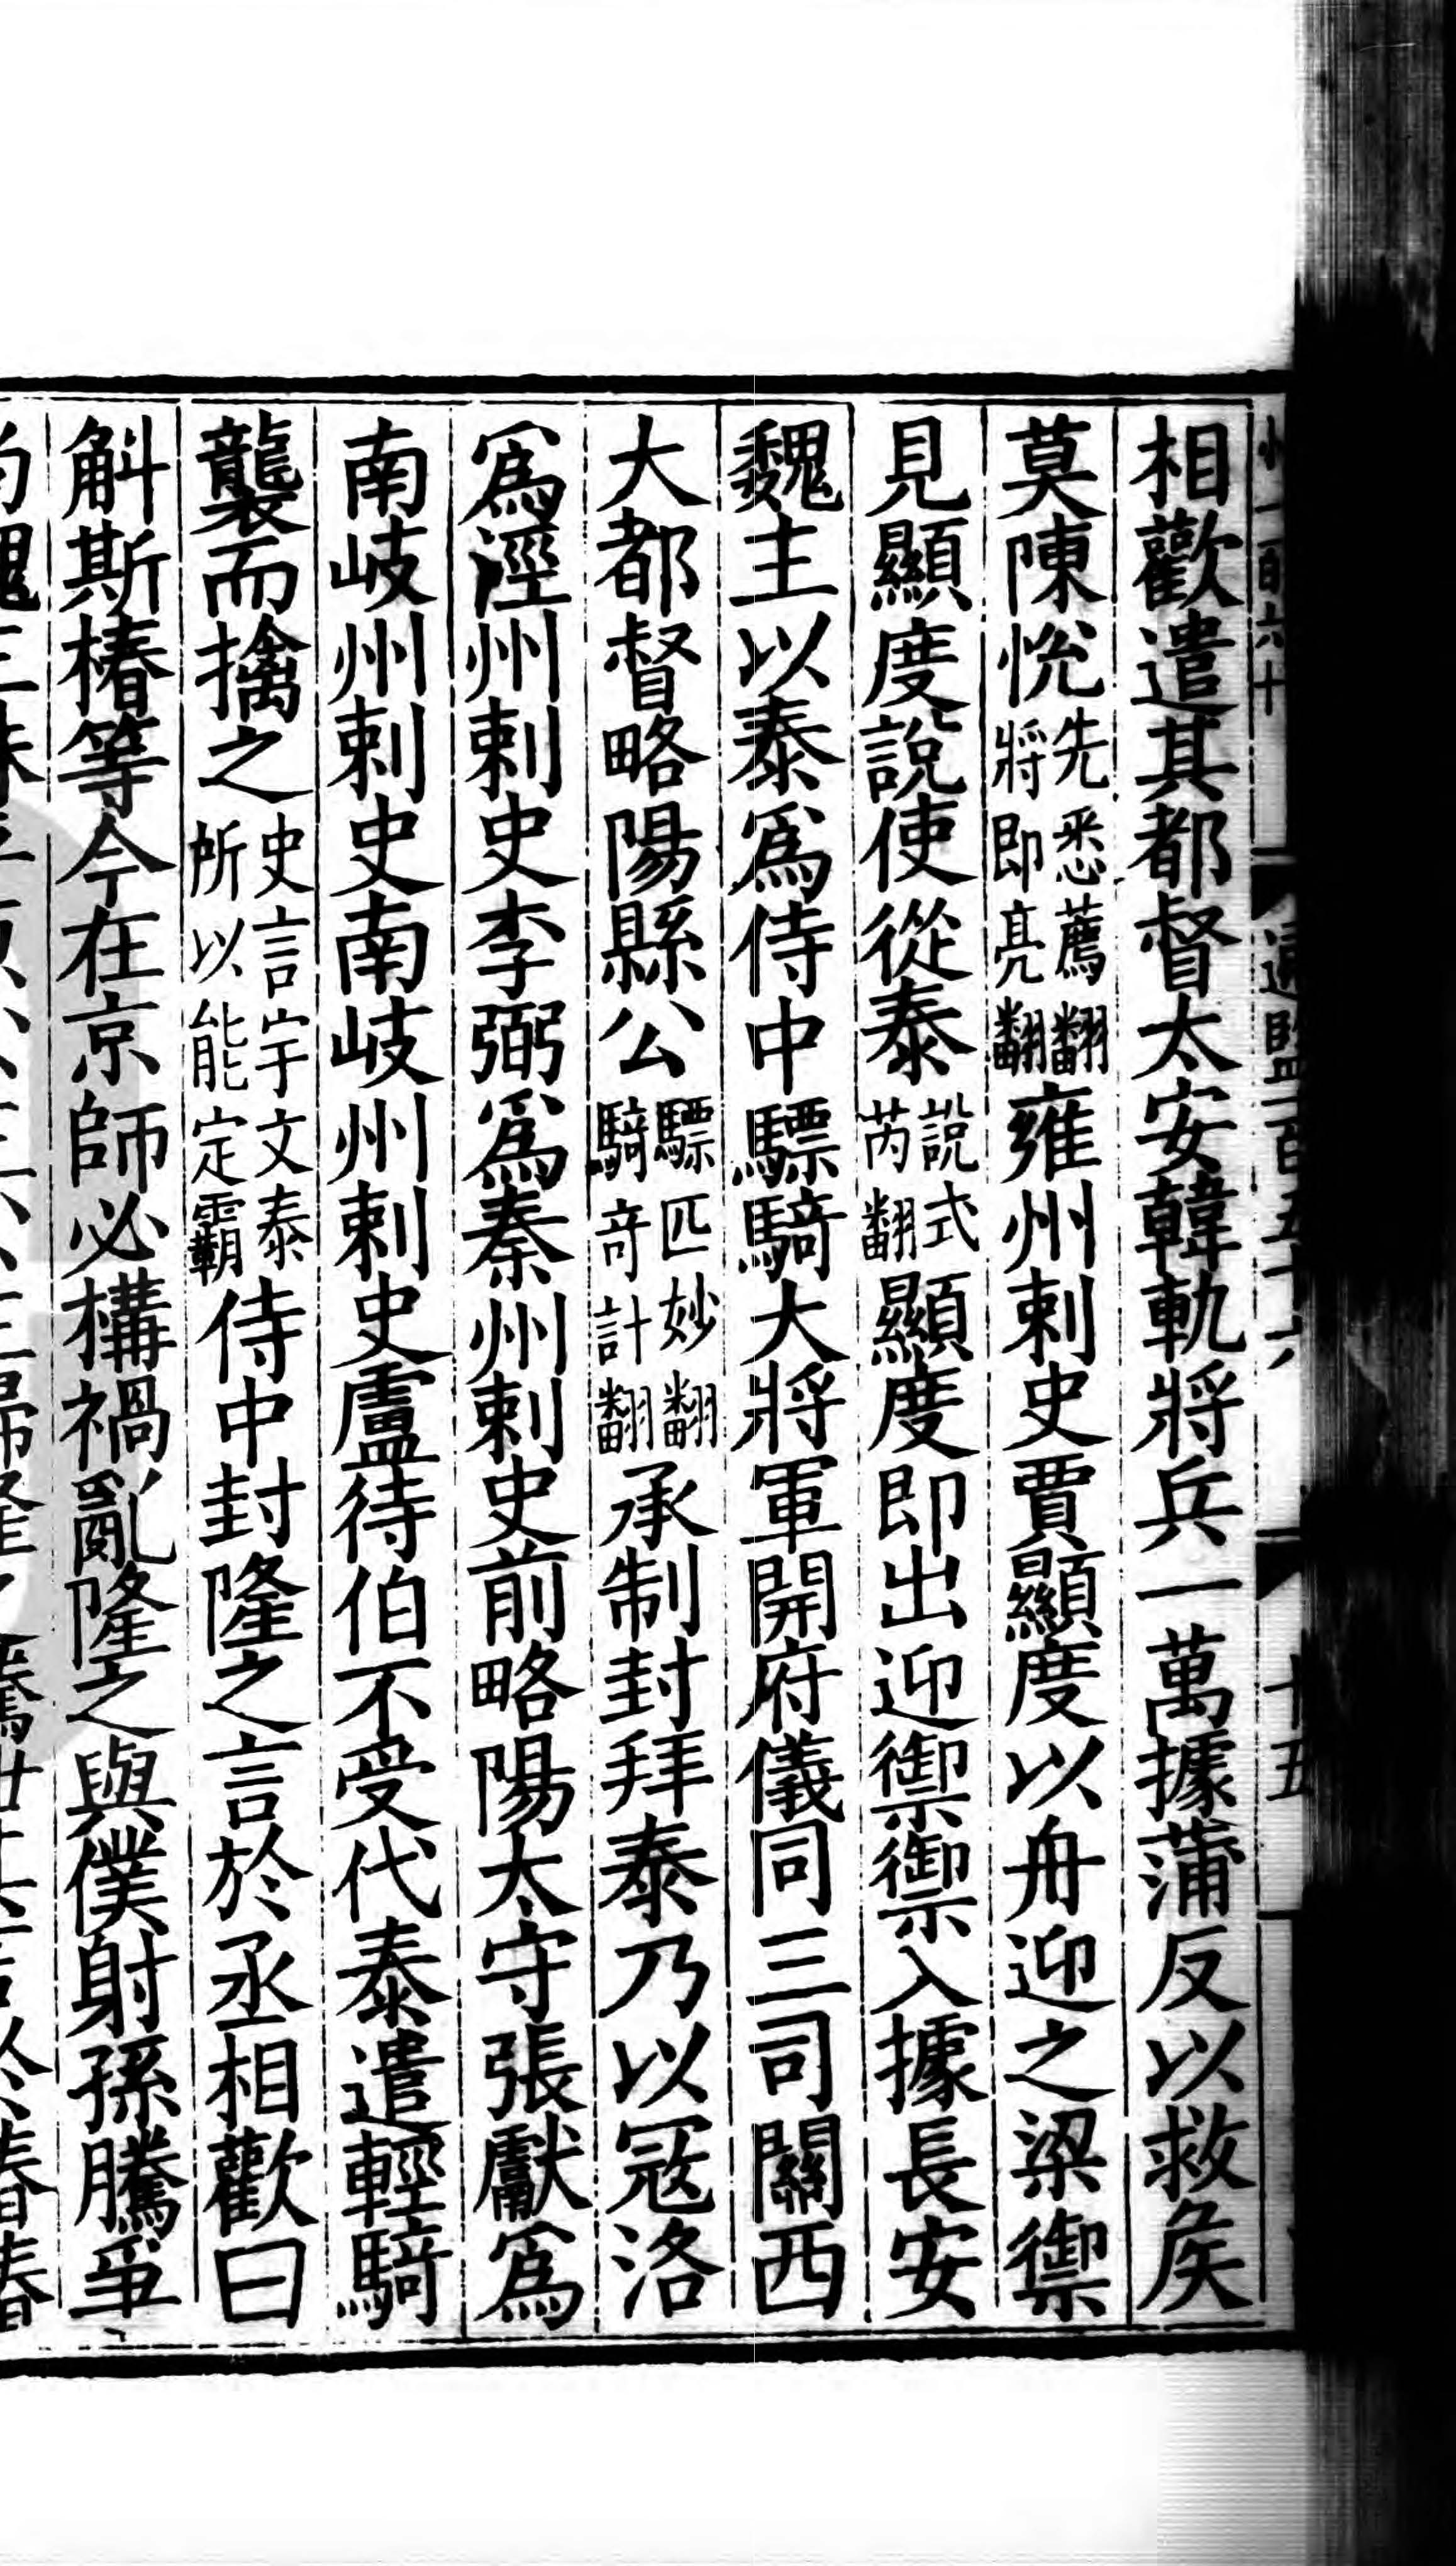 相歡遣其都督太安韓軌將兵一萬據蒲反以救矦
莫陳悅先悉薦翻將即亮翻雍州刺史賈顯度以舟迎之梁禦
見顯度說使從泰說式芮翻顯度即出迎禦禦入據長安
魏主以泰爲侍中驃騎大將軍開府儀同三司關西
大都督略陽縣公驃匹妙翻騎奇計翻承制封拜泰乃以寇洛
爲涇州刺史李弼爲秦州刺史前略陽太守張獻爲
南岐州刺史南岐州刺史盧待伯不受代泰遣輕騎
襲而擒之史言宇文泰所以能定霸侍中封隆之言於丞相歡曰
斛斯椿等今在京師必構禍亂隆之與僕射孫騰爭